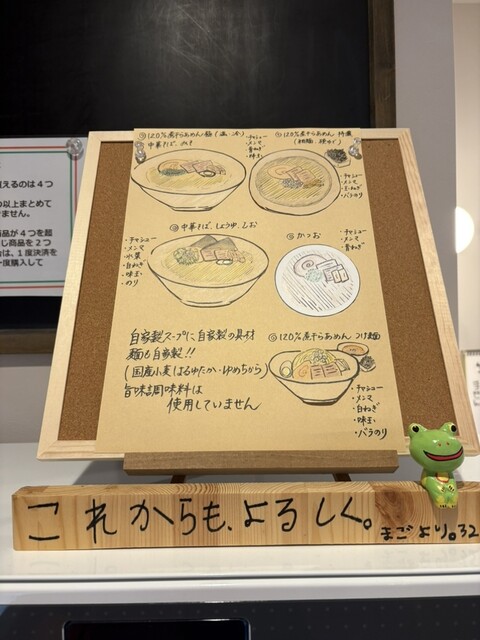 えるのは4つ
の以上まとめて
ません。
商品が4つを超
じ商品を2つ
合は、1度決済を
一度購入して
120%煮干らあめん
・チャシュー
・メンマ
・青ねぎ
・味玉
120%煮干らあめん 特濃
・チャシュー
・メンマ
・玉ねぎ
・バラのり
中華そば、しょうゆ、しお
・チャシュー
・メンマ
・水菜
・白ねぎ
・味玉
・のり
かつお
・チャシュー
・メンマ
・青ねぎ
自家製スープに自家製の具材
麺も自家製!!
(国産小麦はるゆたか・ゆめちから)
旨味調味料は
使用していません
120%煮干らあめん つけ麺
・チャシュー
・メンマ
・白ねぎ
・味玉
・バラのり
これからも、よろしく。
まごより。32